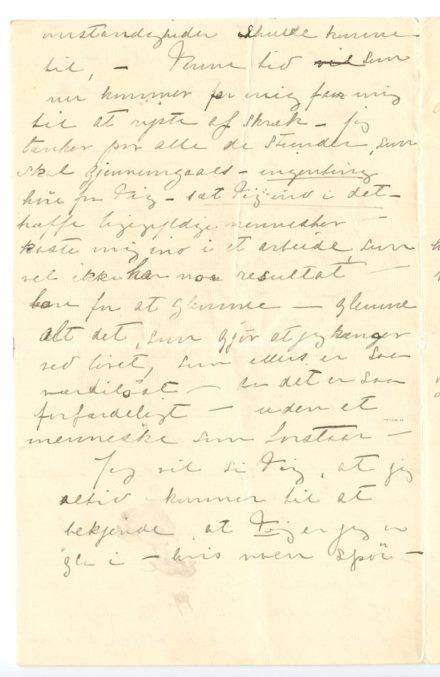 omstændigheder skulde komme
til, – Denne tid vil som
nu kommer for mig faar mig
til at ryste af skræk – jeg
tænker paa alle de stunder, som
skal gjennemgaaes – ingenting
høre fra Dig – sat Dig ind i det –
træffe ligegyldige mennesker –
kaste mig ind i et arbeide, som
vel ikke har noe resultat –
bare for at glemme – glemme
alt det, som gjør at jeg hænger
ved livet, som ellers er saa
værdiløst – det er saa
forfærdeligt – uden et
menneske som forstaar –
Jeg vil si Dig, at jeg
altid kommer til at
bekjende, at Dig er jeg
gla i – hvis noen spør –